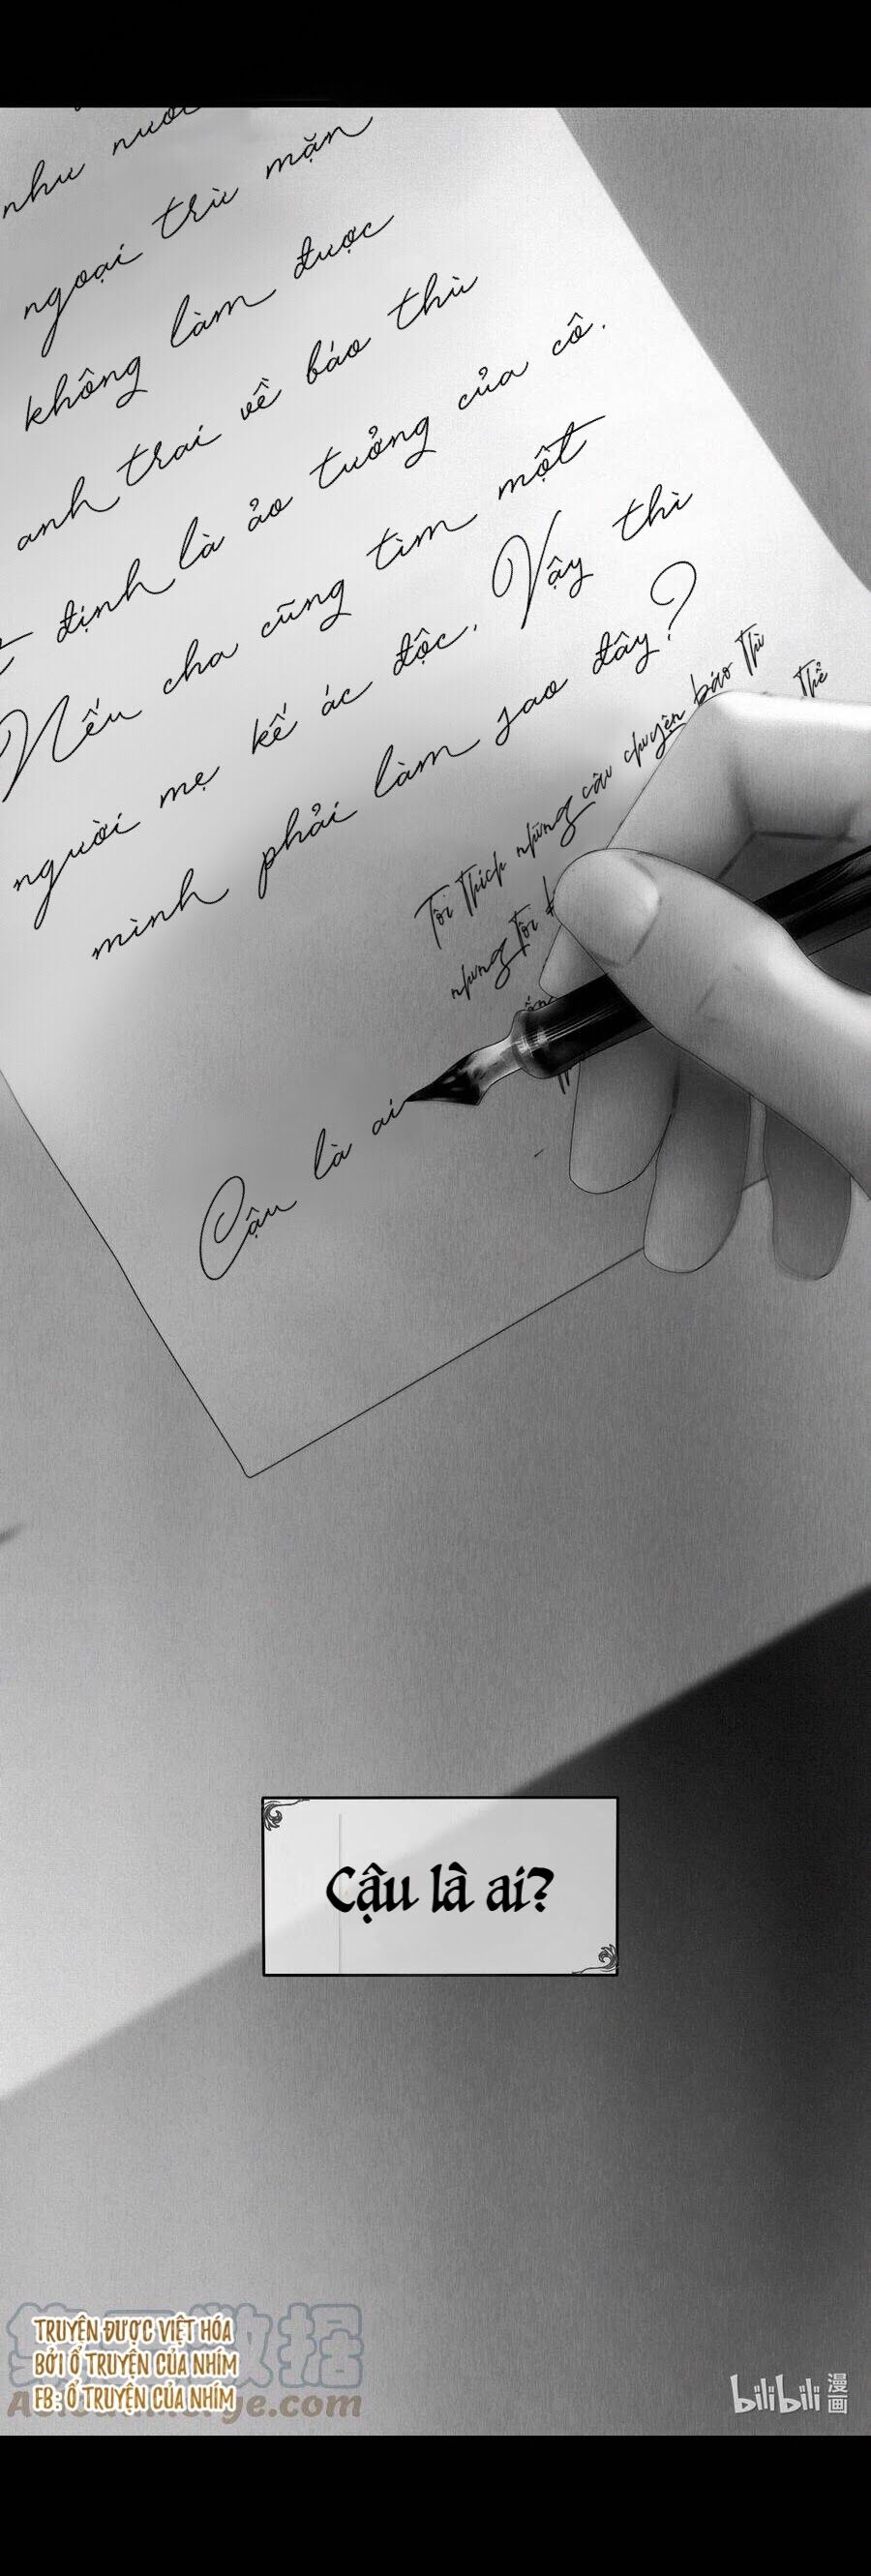 như nước
ngoại trừ mặn
không làm được
anh trai về báo thù
định là ảo tưởng của cô.
Nếu cha cũng tìm một
người mẹ kế ác độc. Vậy thì
mình phải làm sao đây?
Tôi thích những câu chuyện báo thù
nhưng tôi thể
Cậu là ai
Cậu là ai?
TRUYỆN ĐƯỢC VIỆT HÓA
BỞI Ổ TRUYỆN CỦA NHÍM
FB: Ổ TRUYỆN CỦA NHÍM
bilibili 漫画